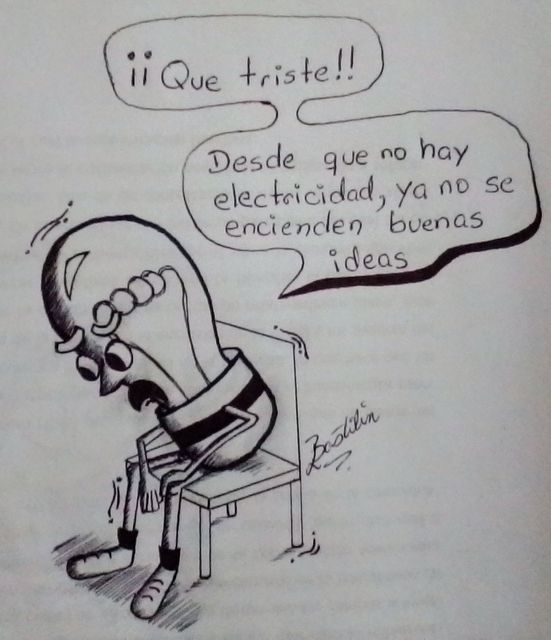 ¡¡Que triste!!
Desde que no hay
electricidad, ya no se
encienden buenas
ideas